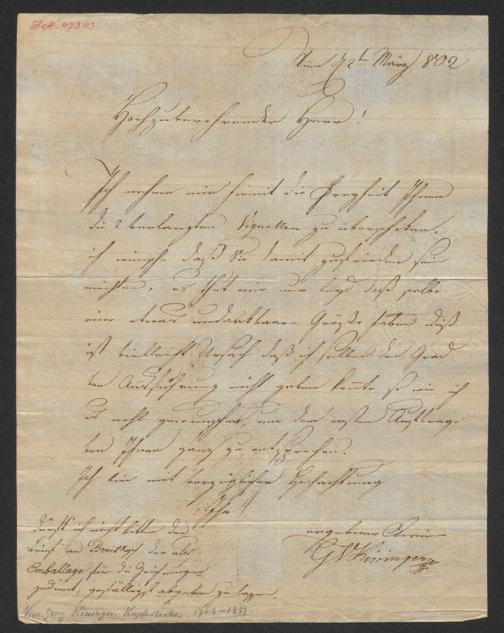 I.N. 47343
Wien 12t März 802
Hochzuverehrender Herr!
Ich nehme mir hiemit die Freyheit Ihnen
die 2 verlangten Vignetten zu überschicken,
ich wünsche daß Sie damit zufrieden seyn
möchten, es thut mir nur leyd daß selbe
eine etwas undankbare Größe haben dieß
ist vielleicht Ursach daß ich selben den Grad
von Ausführung nicht geben konte so wie ich
es wohl gewünscht, um dem ersten Auftrage
von Ihnen ganz zu entsprechen.
Ich bin mit vorzüglicher Hochachtung
Ihr
ergebener Diener
G V Kininger
dürft ich nicht bitten den
Brief an Breitkopf der als
Emballage für die Zeichnungen
gedient, gefälligst abgeben zu lassen.
Vinc. Georg Kininger, Kupferstecher, 1767-1851.